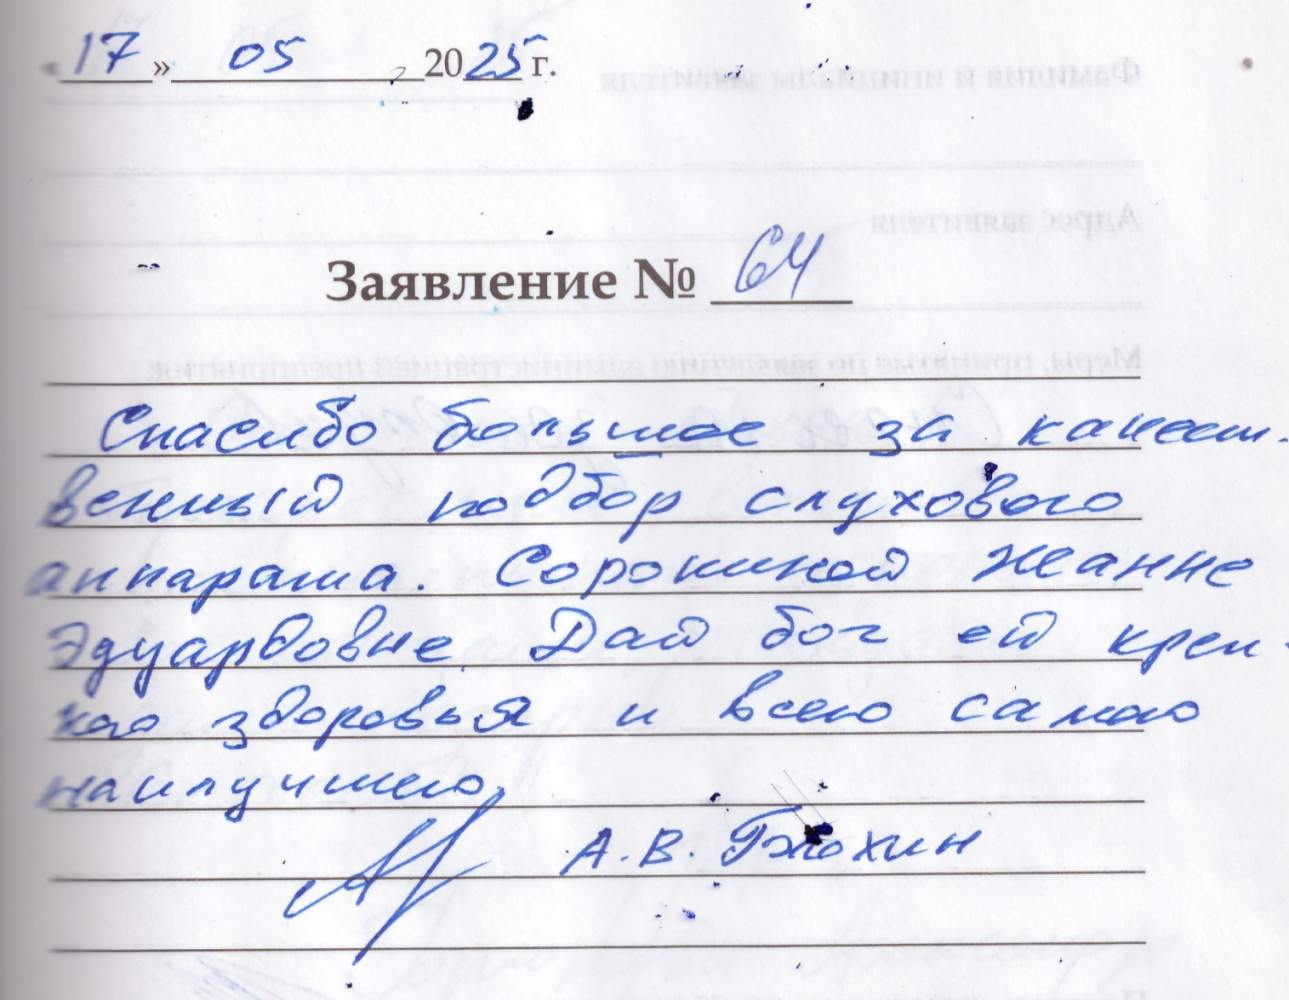 «17» 05 2025 г.
Заявление № 64
Спасибо большое за качест-
венный подбор слухового
аппарата. Сорокиной Жанне
Эдуардовне. Дай бог ей креп-
кого здоровья и всего самого
наилучшего.
А.В.